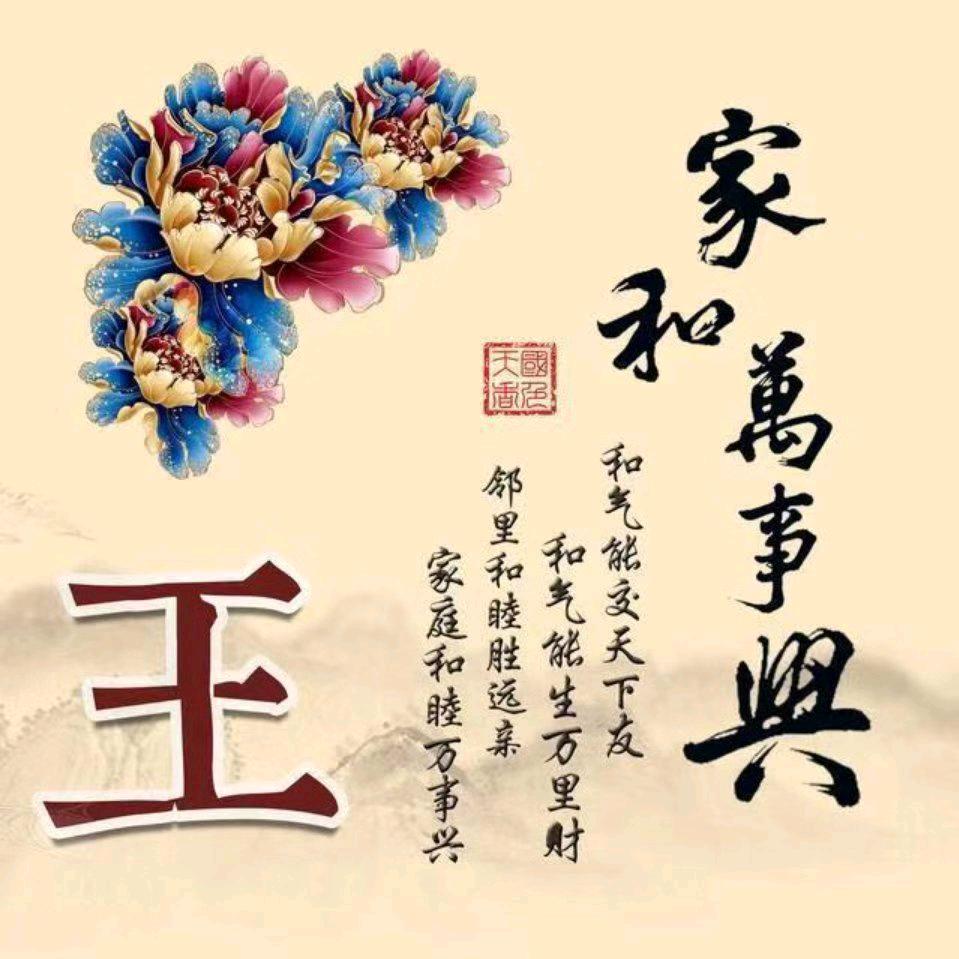 家和萬事興
和气能交天下友
和气能生万里财
邻里和睦胜远亲
家庭和睦万事兴
國色天香
王